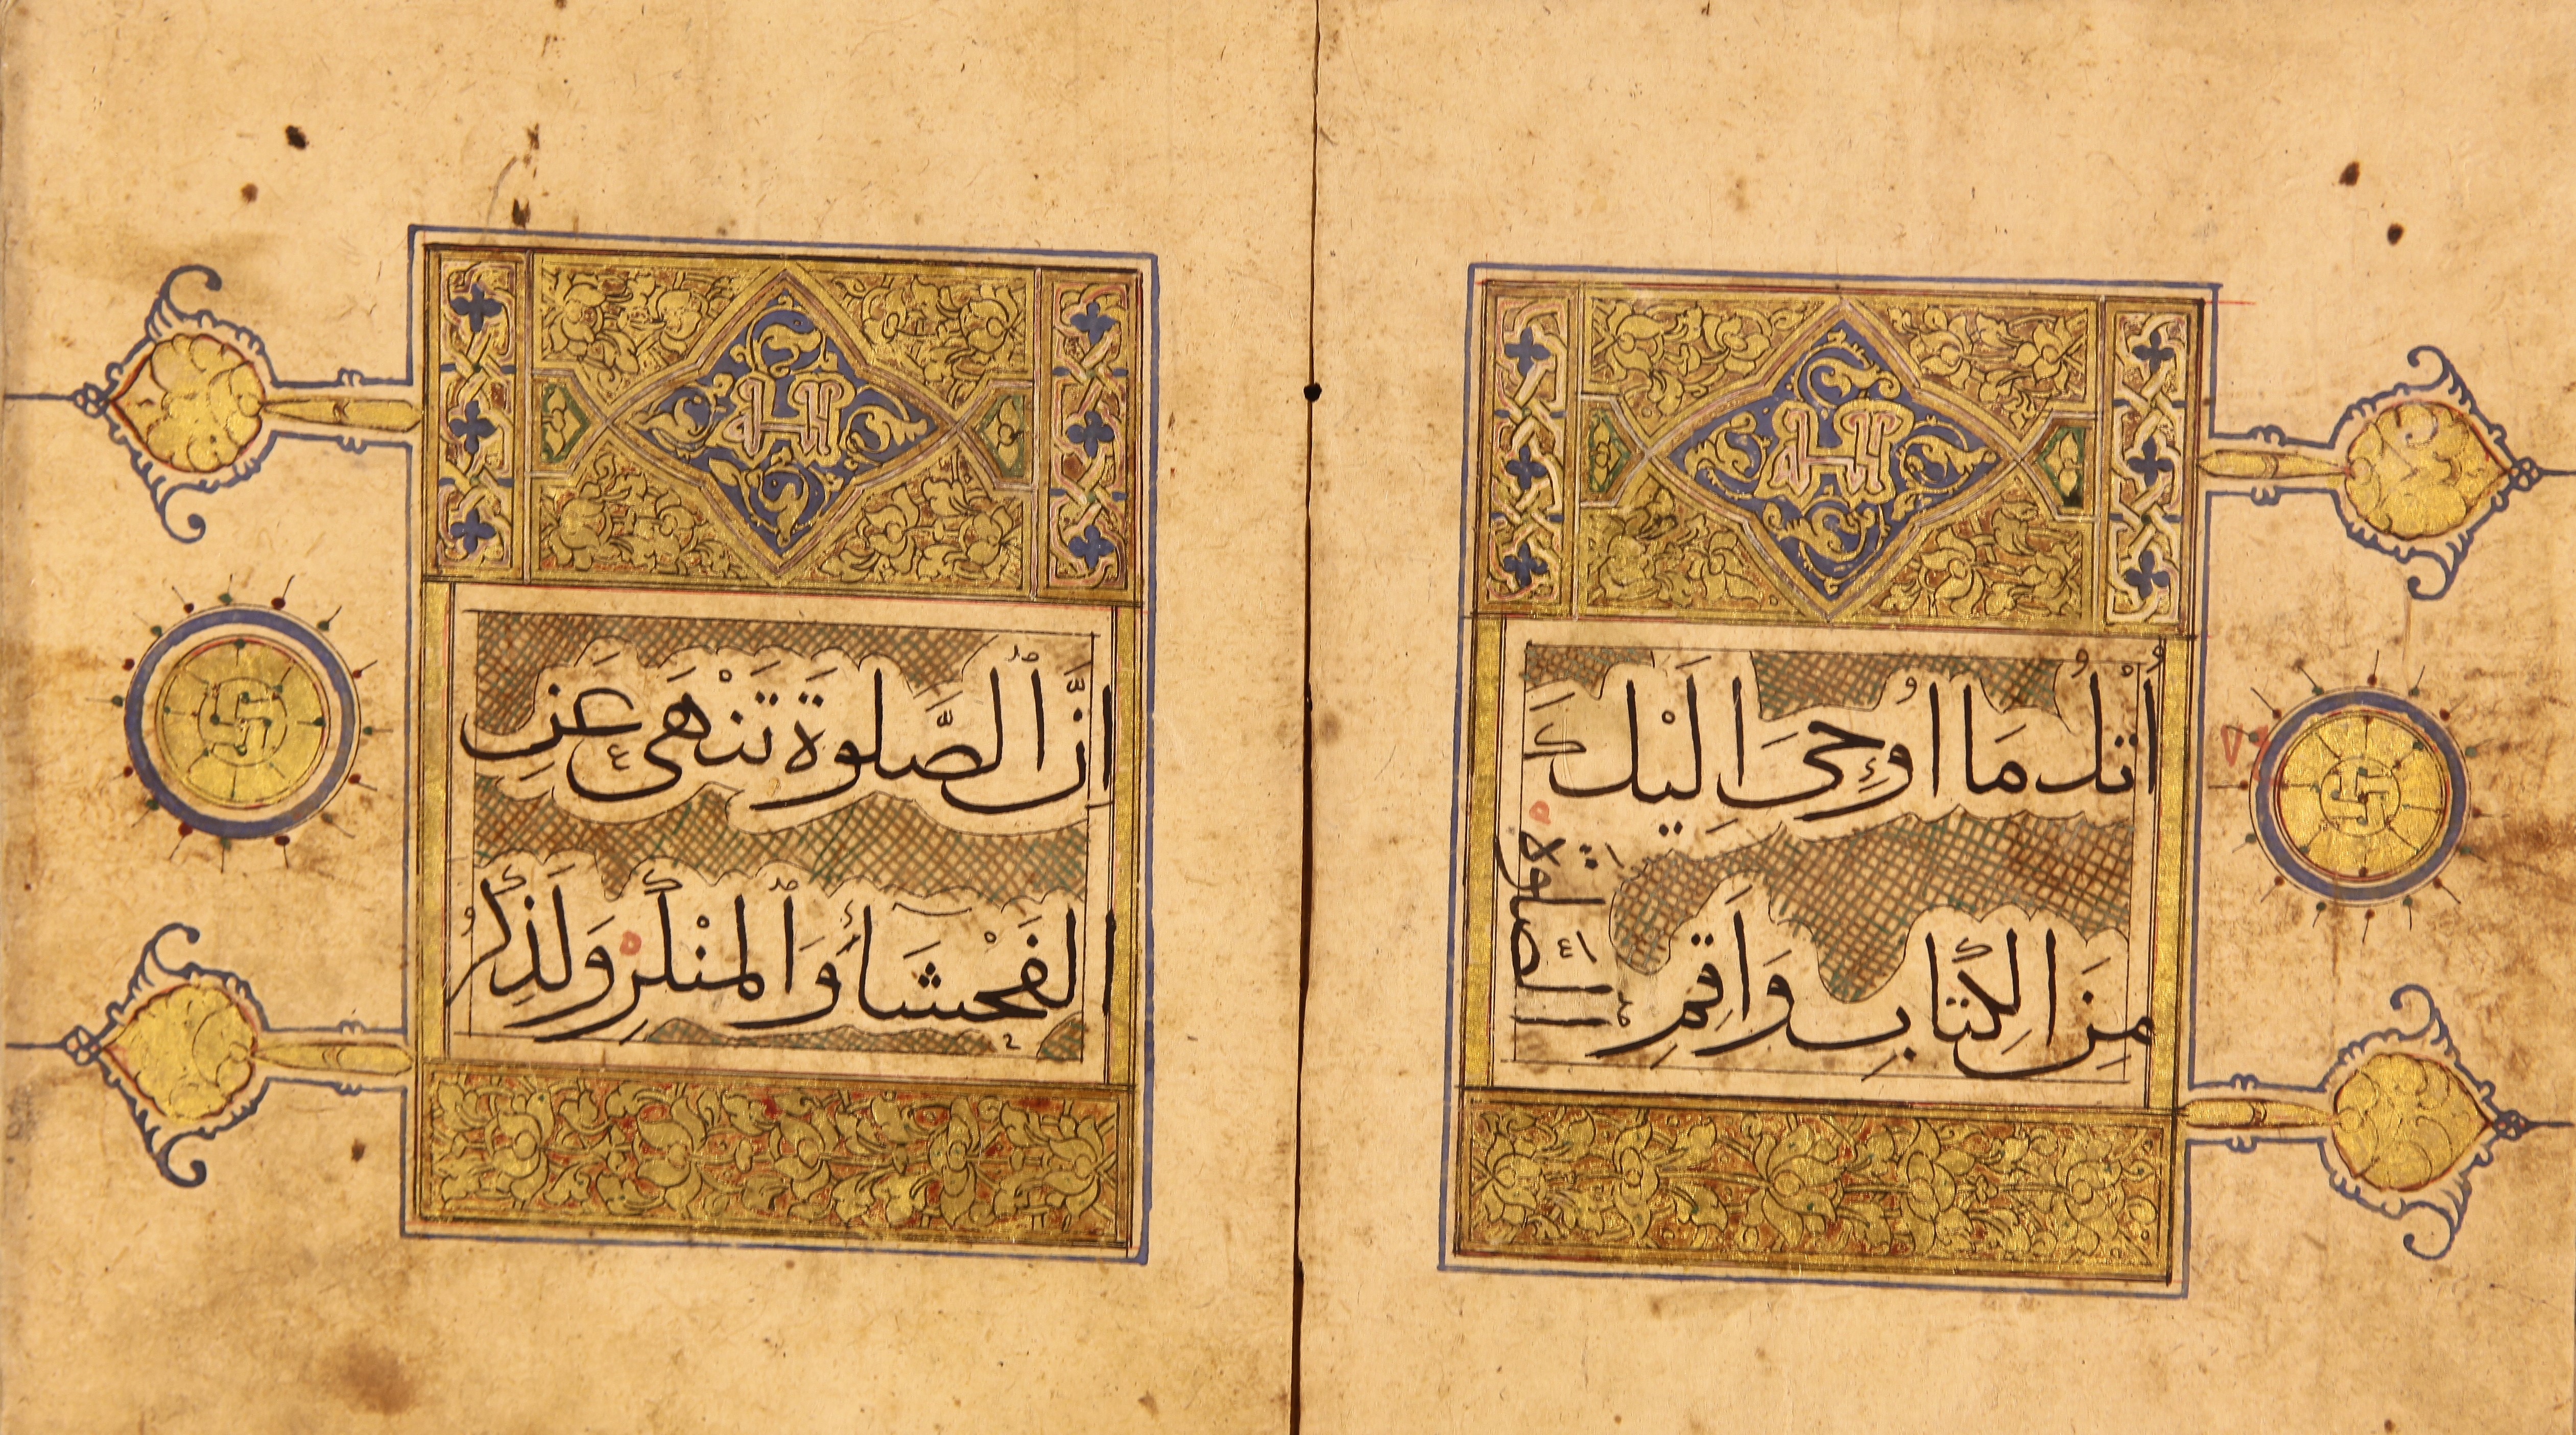 اُتْلُ مَا اُوحِيَ اِلَيْكَ
مِنَ الْكِتَابِ وَاَقِمِ الصلوة
اِنَّ الصَّلوةَ تَنْهَى عَنِ
الفَحْشَاءِ وَالمُنْكَرِ وَلَذِكْرُ